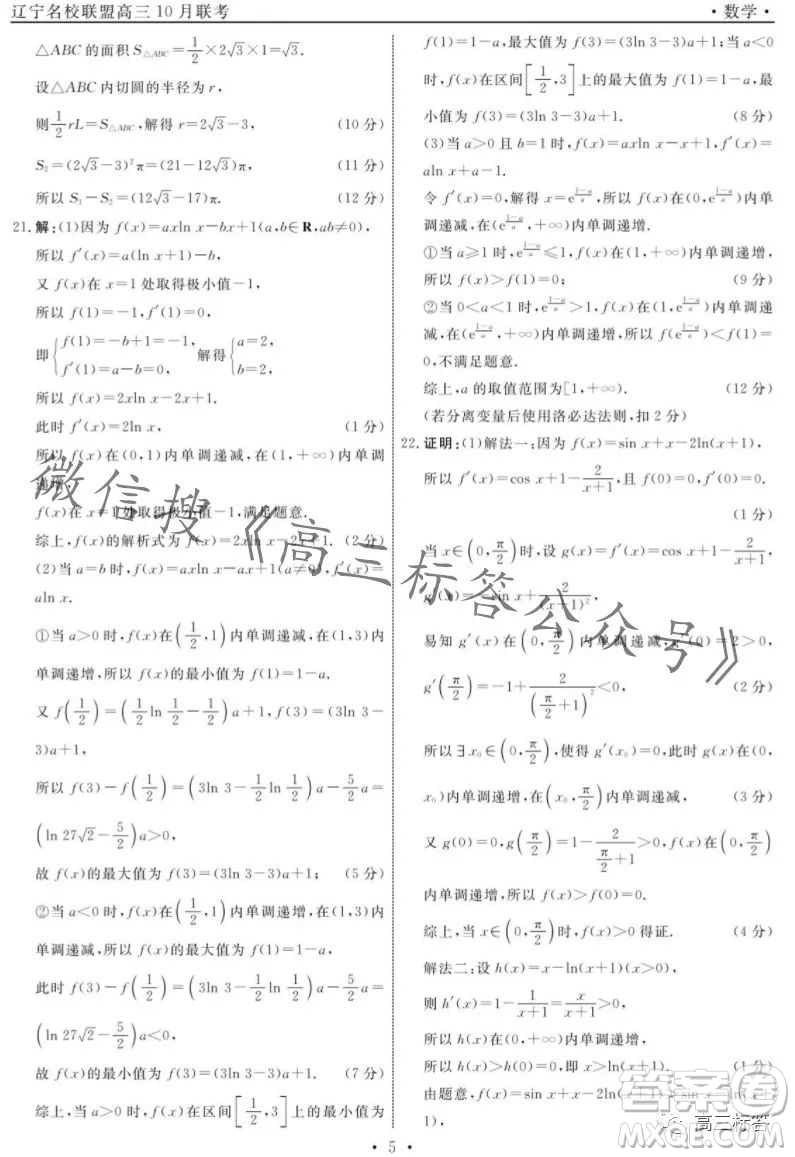 辽宁名校联盟高三10月联考
·数学·
△ABC的面积S△ABC=1/2×2√3×1=√3.
设△ABC内切圆的半径为r,
则1/2rL=S△ABC,解得r=2√3−3, (10分)
S₂=(2√3−3)²π=(21−12√3)π, (11分)
所以S₁−S₂=(12√3−17)π. (12分)
21.解:(1)因为f(x)=axln x−bx+1(a,b∈R,ab≠0),
所以f′(x)=a(ln x+1)−b,
又f(x)在x=1处取得极小值−1,
所以f(1)=−1,f′(1)=0,
即{f(1)=−b+1=−1, f′(1)=a−b=0, 解得{a=2, b=2,
所以f(x)=2xln x−2x+1.
此时f′(x)=2ln x, (1分)
所以f(x)在(0,1)内单调递减,在(1,+∞)内单调
递增,
f(x)在x=1处取得极小值−1,满足题意.
综上,f(x)的解析式为f(x)=2xln x−2x+1. (2分)
(2)当a=b时,f(x)=axln x−ax+1(a≠0),f′(x)=
aln x.
①当a>0时,f(x)在(1/2,1)内单调递减,在(1,3)内
单调递增,所以f(x)的最小值为f(1)=1−a.
又f(1/2)=(1/2 ln 1/2−1/2)a+1,f(3)=(3ln 3−
3)a+1,
所以f(3)−f(1/2)=(3ln 3−1/2 ln 1/2)a−5/2 a=
(ln 27√2−5/2)a>0,
故f(x)的最大值为f(3)=(3ln 3−3)a+1; (5分)
②当a<0时,f(x)在(1/2,1)内单调递增,在(1,3)内
单调递减,所以f(x)的最大值为f(1)=1−a,
此时f(3)−f(1/2)=(3ln 3−1/2 ln 1/2)a−5/2 a=
(ln 27√2−5/2)a<0,
故f(x)的最小值为f(3)=(3ln 3−3)a+1. (7分)
综上,当a>0时,f(x)在区间[1/2,3]上的最小值为
f(1)=1−a,最大值为f(3)=(3ln 3−3)a+1;当a<0
时,f(x)在区间[1/2,3]上的最大值为f(1)=1−a,最
小值为f(3)=(3ln 3−3)a+1. (8分)
(3)当a>0且b=1时,f(x)=axln x−x+1,f′(x)=
aln x+a−1.
令f′(x)=0,解得x=e^((1−a)/a),所以f(x)在(0,e^((1−a)/a))内单
调递减,在(e^((1−a)/a),+∞)内单调递增.
①当a≥1时,e^((1−a)/a)≤1,f(x)在(1,+∞)内单调递增,
所以f(x)>f(1)=0; (9分)
②当0<a<1时,e^((1−a)/a)>1,f(x)在(1,e^((1−a)/a))内单调递
减,在(e^((1−a)/a),+∞)内单调递增,所以f(e^((1−a)/a))<f(1)=
0,不满足题意.
综上,a的取值范围为[1,+∞). (12分)
(若分离变量后使用洛必达法则,扣2分)
22.证明:(1)解法一:因为f(x)=sin x+x−2ln(x+1),
所以f′(x)=cos x+1−2/(x+1),且f(0)=0,f′(0)=0.
(1分)
当x∈(0,π/2)时,设g(x)=f′(x)=cos x+1−2/(x+1),
g′(x)=−sin x+2/(x+1)²,
易知g′(x)在(0,π/2)内单调递减,g′(0)=2>0,
g′(π/2)=−1+2/(π/2+1)²<0, (2分)
所以∃x₀∈(0,π/2),使得g′(x₀)=0,此时g(x)在(0,
x₀)内单调递增,在(x₀,π/2)内单调递减, (3分)
又g(0)=0,g(π/2)=1−2/(π/2+1)>0,f(x)在(0,π/2)
内单调递增,所以f(x)>f(0)=0.
综上,当x∈(0,π/2)时,f(x)>0得证. (4分)
解法二:设h(x)=x−ln(x+1),
则h′(x)=1−1/(x+1)=x/(x+1)>0,
所以h(x)在(0,+∞)内单调递增,
所以h(x)>h(0)=0,即x>ln(x+1). (1分)
由题意,f(x)=sin x+x−2ln(x+
1),
·5·
微信搜《高三标答公众号》
高三标答
答案圈
MXQE.COM